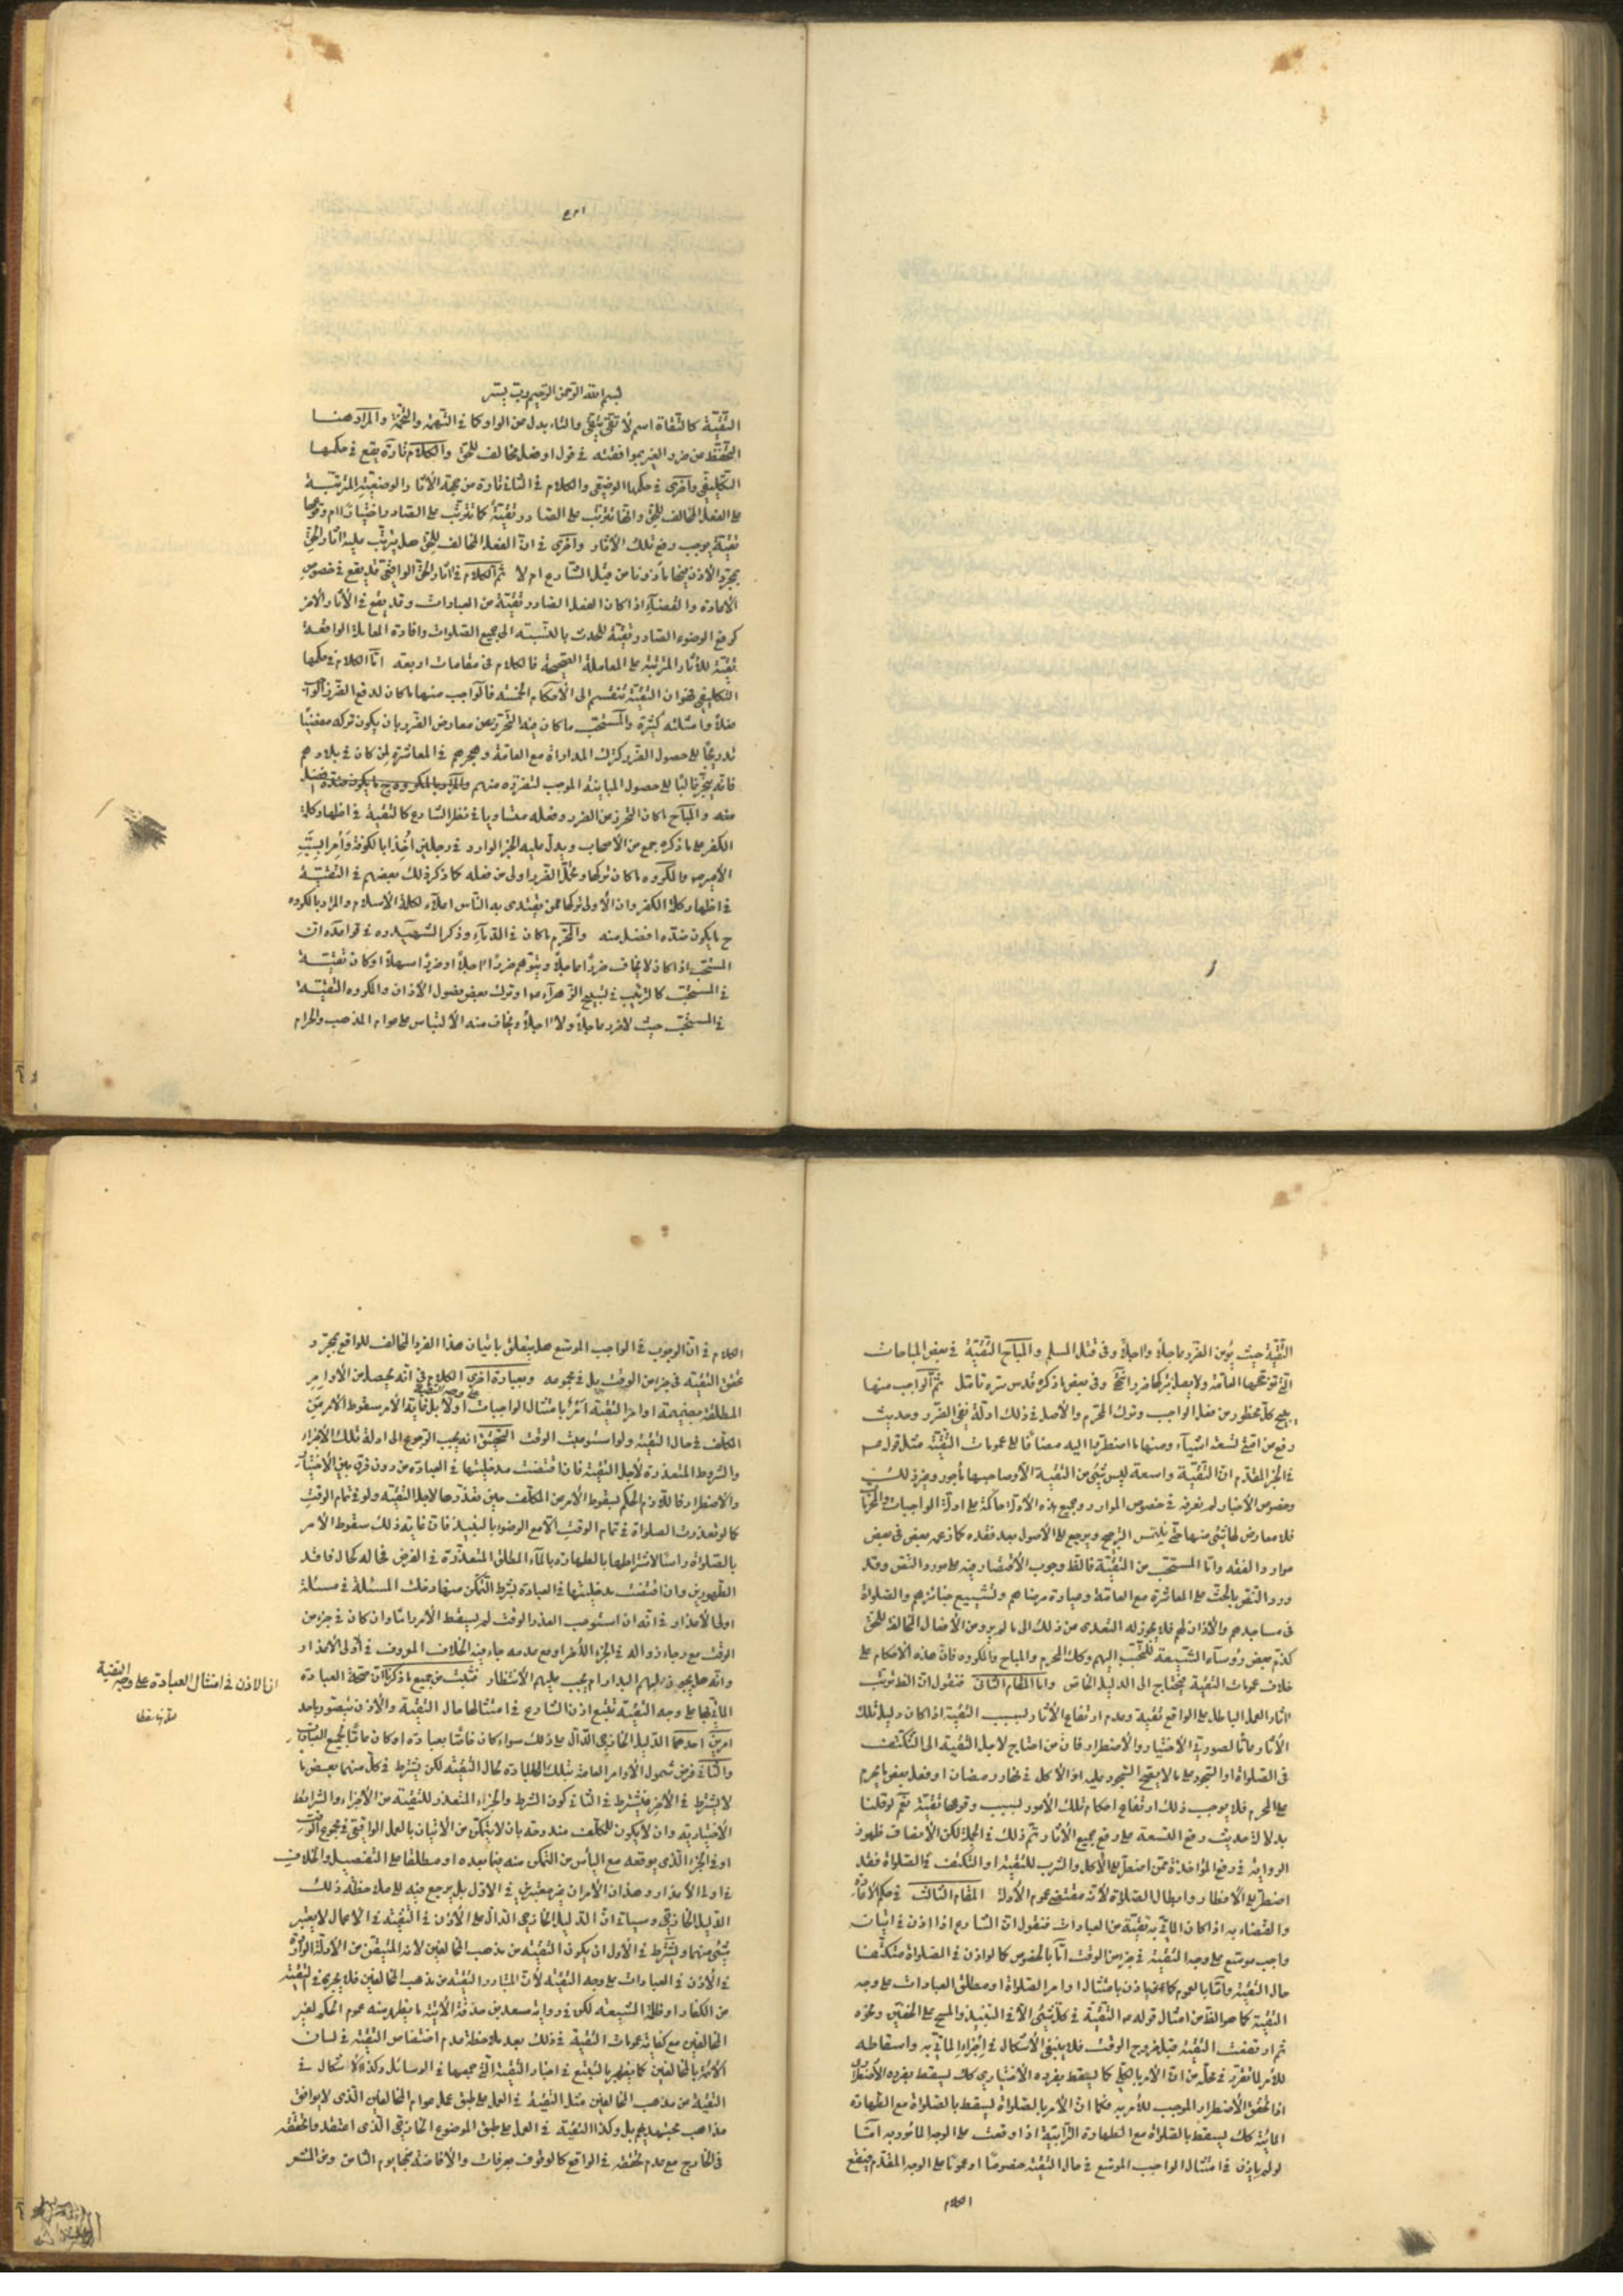 بسم الله الرحمن الرحيم وبه نستعين
التقية كالتقاة اسم لاتقى يتقى والتاء بدل من الواو كما في التهمة والتخمة والمراد هنا
التحفظ من ضرر الغير بموافقته في قول او فعل مخالف للحق والكلام تارة يقع في حكمها
التكليفي واخرى في حكمها الوضعي والكلام في الثاني تارة من جهة الآثار الوضعية المترتبة
على الفعل المخالف للحق وانها تترتب على الصادر تقية كما تترتب على الصادر اختيارا ام وقوعها
تقية يوجب رفع تلك الآثار واخرى في ان الفعل المخالف للحق هل يترتب عليه آثار الحق
بمجرد الاذن فيها ماذونا من قبل الشارع ام لا ثم الكلام في آثار الحق الواقعي قد يقع في خصوص
الاعادة والقضاء اذا كان الفعل الصادر تقية من العبادات وقد يقع في الآثار الاخر
كرفع الوضوء الصادر تقية للحدث بالنسبة الى جميع الصلوات وافادة المعاملة الواقعة
تقية للآثار المترتبة على المعاملة الصحيحة فالكلام في مقامات اربعة اما الكلام في حكمها
التكليفي فهو ان التقية تنقسم الى الاحكام الخمسة فالواجب منها ما كان لدفع الضرر الواجب
فعلا وامثلته كثيرة والمستحب ما كان فيه التحرز عن معارض الضرر بان يكون تركه مفضيا
تدريجا على حصول الضرر كترك المداراة مع العامة وهجرهم في المعاشرة لمن كان في بلادهم
فانه ينجر غالبا على حصول المباينة الموجب لتضرره منهم
منه والمباح ما كان التحرز من الضرر وفعله متساويا في نظر الشارع كالتقية في اظهار كلمة
الكفر على ما ذكره جمع من الاصحاب ويدل عليه الخبر الوارد في رجلين اخذا بالكوفة وامرا بسب
الامير ص والمكروه ما كان تركها وتحمل الضرر اولى من فعله كما ذكر ذلك بعضهم في التقية
في اظهار كلمة الكفر وان الاولى تركها ممن يقتدى به الناس اعلاء لكلمة الاسلام والمراد بالمكروه
ح ما يكون ضده افضل منه والمحرم ما كان في الدماء وذكر الشهيد ره في قواعده ان
المستحب اذا كان لا يخاف ضررا عاجلا ويتوهم ضررا آجلا او ضررا سهلا او كان تقية
في المستحب كالترتيب في تسبيح الزهراء ص او ترك بعض فصول الاذان والمكروه التقية
في المستحب حيث لا ضرر عاجلا ولا آجلا ويخاف منه الالتباس على عوام المذهب والحرام
التقية حيث يؤمن الضرر عاجلا وآجلا وفي قتل المسلم والمباح التقية في بعض المباحات
التي ترجحها العامة ولا يصل بتركها ضرر انتهى وفي بعض ما ذكره قدس سره تامل ثم الواجب منها
يبيح كل محظور من فعل الواجب وترك المحرم والاصل في ذلك ادلة نفي الضرر وحديث
رفع عن امتي تسعة اشياء ومنها ما اضطروا اليه مضافا على عمومات التقية مثل قوله ص
في الخبر المقدم ان التقية واسعة ليس شيء من التقية الا وصاحبها ماجور وغير ذلك
وخصوص الاخبار
فلا معارض لها شيء منها حتى يلتمس الترجيح ويرجع على الاصول بعد فقده كما زعم بعض في بعض
موارد الفقه واما المستحب من التقية فالظ وجوب الاقتصار فيه على مورد النص وقد
ورد النص بالحث على المعاشرة مع العامة وعيادة مرضاهم وتشييع جنائزهم والصلوة
في مساجدهم والاذان لهم فلا يجوز له التعدى من ذلك الى ما لم يرد من الافعال المخالفة للحق
كذم بعض رؤساء الشيعة للتحبب اليهم وكك المحرم والمباح والمكروه فان هذه الاحكام على
خلاف عمومات التقية فيحتاج الى الدليل الخاص واما المقام الثاني فنقول ان الظ ترتب
آثار العمل الباطل على الواقع تقية وعدم ارتفاع الآثار بسبب التقية اذا كان دليل تلك
الآثار عاما لصورتي الاختيار والاضطرار فان من احتاج لاجل التقية الى التكتف
في الصلوة او السجود على ما لا يصح السجود عليه او الاكل في نهار رمضان او فعل بعض ما يحرم
على المحرم فلا يوجب ذلك ارتفاع احكام تلك الامور بسبب وقوعها تقية نعم لو قلنا
بدلالة حديث رفع التسعة على رفع جميع الآثار تم ذلك في الجملة لكن الانصاف ظهور
الرواية في رفع المؤاخذة فمن اضطر على الاكل والشرب للتقية او التكتف في الصلوة فقد
اضطر على الافطار وابطال الصلوة لانه مقتضى عموم الادلة المقام الثالث في حكم الاعادة
والقضاء به اذا كان الماتي به تقية من العبادات فنقول ان الشارع اذا اذن في اتيان
واجب موسع على وجه التقية في جزء من الوقت اما بالخصوص كما لو اذن في الصلوة متكتفا
حال التقية واما بالعموم كان ياذن بامتثال اوامر الصلوة او مطلق العبادات على وجه
التقية كما هو الظ من امثال قوله ص التقية في كل شيء الا في النبيذ والمسح على الخفين ونحوه
ثم ارتفعت التقية قبل خروج الوقت فلا ينبغي الاشكال في اجزاء الماتي به واسقاطه
للامر لما تقرر في محله من ان الامر بالكلي كما يسقط بفرده الاختياري كك يسقط بفرده الاضطراري
اذا تحقق الاضطرار الموجب للامر به فكما ان الامر بالصلوة يسقط بالصلوة مع الطهارة
المائية كك يسقط بالصلوة مع الطهارة الترابية اذا وقعت على الوجه المامور به اما
لو لم ياذن في امتثال الواجب الموسع في حال التقية خصوصا او عموما على الوجه المقدم فيقع
الكلام
الكلام في ان الوجوب في الواجب الموسع هل يتعلق باتيان هذا الفرد المخالف للواقع بمجرد
تحقق التقية في جزء من الوقت بل في مجموعه وبعبارة اخرى الكلام في انه يحصل من الاوامر
المطلقة بضميمة اوامر التقية امر بامتثال الواجبات على وجه التقية او لا بل غاية الامر سقوط الامر عن
المكلف في حال التقية ولو استوعبت الوقت التحقيق انه يجب الرجوع الى ادلة تلك الاجزاء
والشروط المتعذرة لاجل التقية فان اقتضت مدخليتها في العبادة من دون فرق بين الاختيار
والاضطرار فاللازم الحكم بسقوط الامر عن المكلف حين تعذرها لاجل التقية ولو في تمام الوقت
كما لو تعذرت الصلوة في تمام الوقت الا مع الوضوء بالنبيذ فان غاية ذلك سقوط الامر
بالصلوة راسا لاشتراطها بالطهارة بالماء المطلق المتعذرة في الفرض فحاله كحال فاقد
الطهورين وان اقتضت مدخليتها في العبادة بشرط التمكن منها دخلت المسئلة في مسئلة
اولى الاعذار في انه ان استوعب العذر الوقت لم يسقط الامر راسا وان كان في جزء من
الوقت مع رجاء زواله في الجزء الآخر او مع عدمه جاء فيه الخلاف المعروف في اولى الاعذار
وانه هل يجوز عليهم البدار ام يجب عليهم الانتظار فتثبت من جميع ما ذكرنا ان صحة العبادة
الماتي بها على وجه التقية تتبع اذن الشارع في امتثالها حال التقية والاذن متصور باحد
امرين احدهما الدليل الخارجي الدال على ذلك سواء كان خاصا بعبادة او كان عاما لجميع العبادات
والثاني فرض شمول الاوامر العامة بتلك العبادة لحال التقية لكن يشترط في كل منهما بعض ما
لا يشترط في الآخر فيشترط في الثاني كون الشرط والجزء المتعذر للتقية من الاجزاء والشرائط
الاختيارية وان لا يكون للمكلف مندوحة بان لا يتمكن من الاتيان بالعمل الواقعي في مجموع الوقت
او في الجزء الذي يوقعه مع الياس من التمكن منه فيما بعده او مطلقا على التفصيل والخلاف
في اولى الاعذار وهذان الامران غير معتبرين في الاول بل يرجع فيه على ملاحظة ذلك
الدليل الخارجي وسياتي ان الدليل الخارجي الدال على الاذن في التقية في الاعمال لا يعتبر
شيء منهما ويشترط في الاول ان يكون التقية من مذهب المخالفين لانه المتيقن من الادلة الواردة
في الاذن في العبادات على وجه التقية لان المتبادر التقية من مذهب المخالفين فلا يجري في التقية
من الكفار او ظلمة الشيعة لكن في رواية مسعدة بن صدقة الآتية ما يظهر منه عموم الحكم لغير
المخالفين مع كفاية عمومات التقية في ذلك بعد ملاحظة عدم اختصاص التقية في لسان
الائمة بالمخالفين كما يظهر بالتتبع في اخبار التقية التي جمعها في الوسائل وكذا لا اشكال في
التقية من مذهب المخالفين مثل التقية في العمل على طبق عمل عوام المخالفين الذي لا يوافق
مذاهب مجتهديهم بل وكذا التقية في العمل على طبق الموضوع الخارجي الذي اعتقدوا تحققه
في الخارج مع عدم تحققه في الواقع كالوقوف بعرفات والافاضة منها يوم الثامن ومن المشعر
ان الاذن في امتثال العبادة على وجه التقية